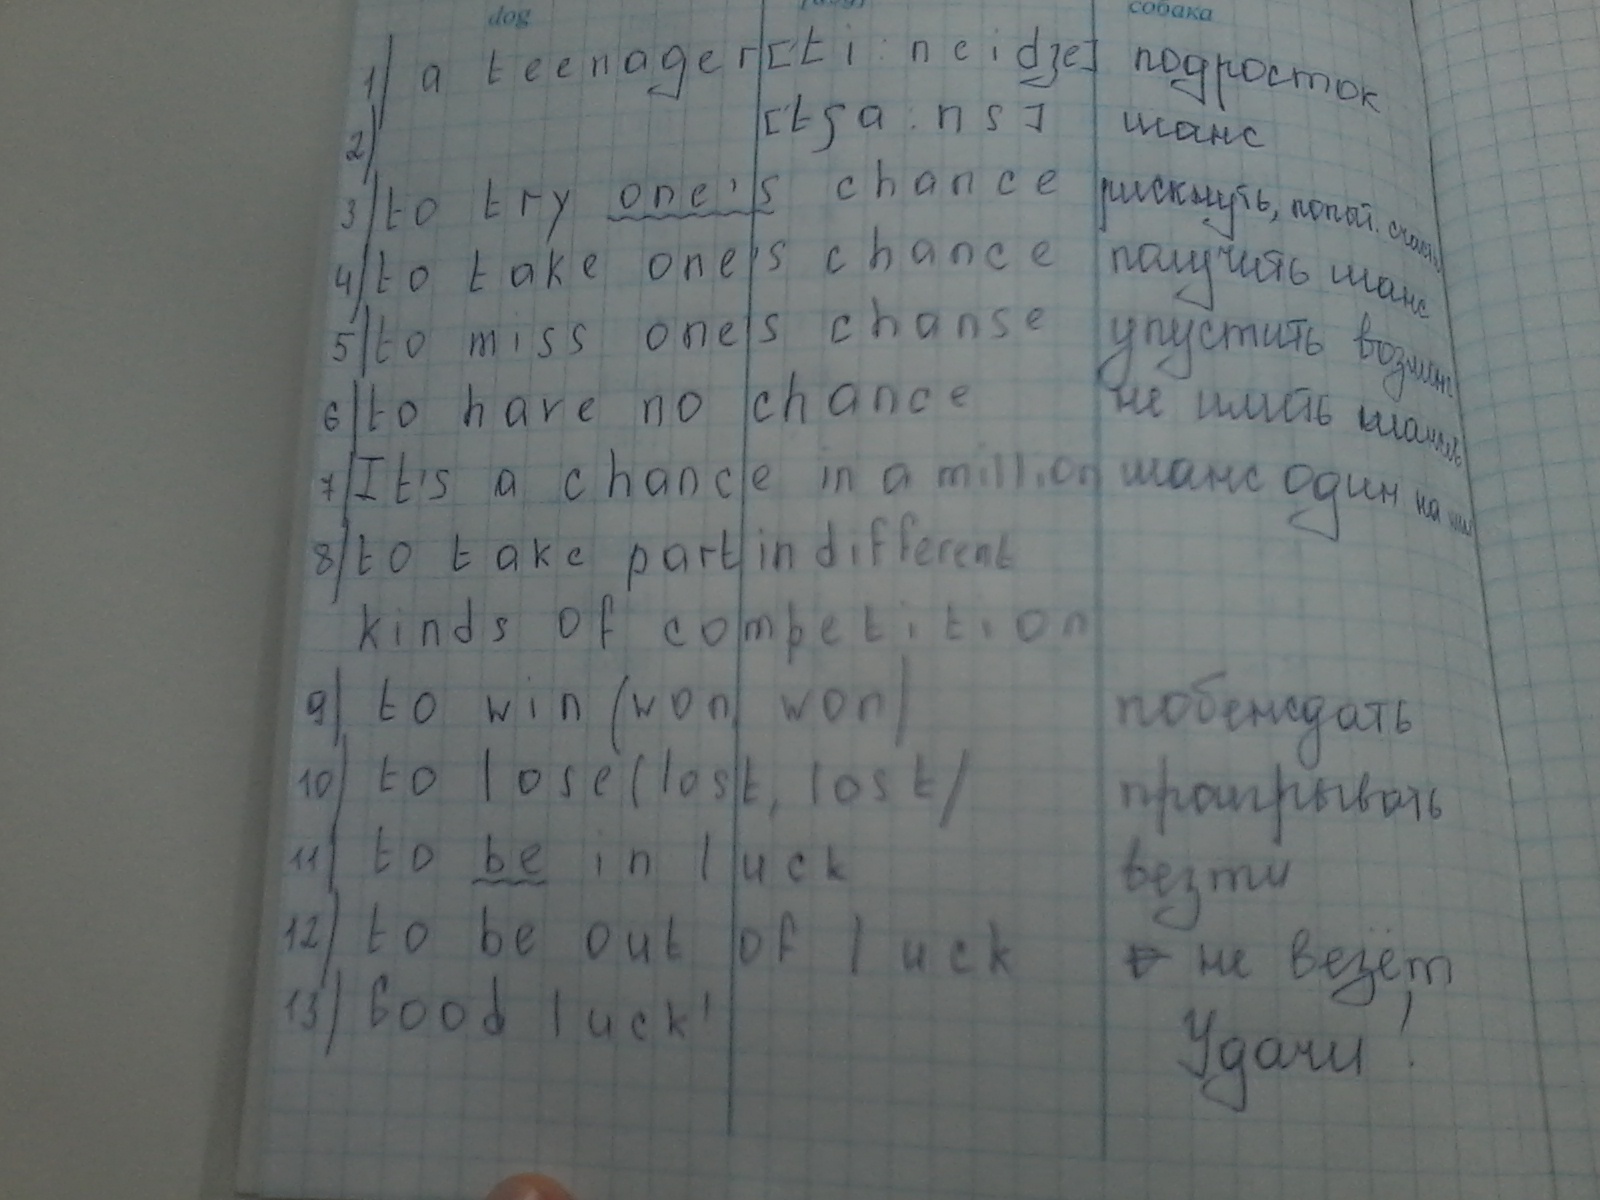 dog собака
1) a teenager [ti:neidʒe] подросток
2) [tʃa:ns] шанс
3) to try one's chance рискнуть, попыт. счасть
4) to take one's chance получить шанс
5) to miss one's chanse упустить возмож
6) to have no chance не иметь шансов
7) It's a chance in a million шанс один на
8) to take part in different
kinds of competition
9) to win (won won) побеждать
10) to lose (lost, lost) проигрывать
11) to be in luck везти
12) to be out of luck не везёт
13) Good luck! Удачи!